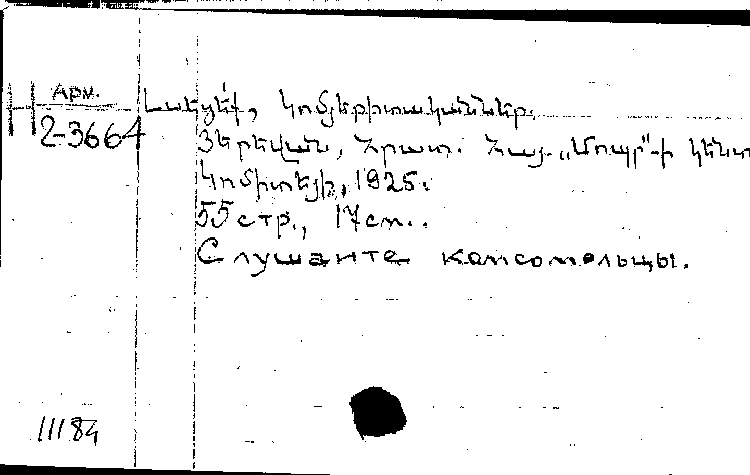 Н Арм. 2-3664
Լսեցե՛ք, կոմյերիտականներ.
Յերեվան, Հրատ. Հայ. „Մոպր"-ի կենտ
կոմիտեյի, 1925.
55 стр., 17 см..
Слушайте комсомольцы.
11184